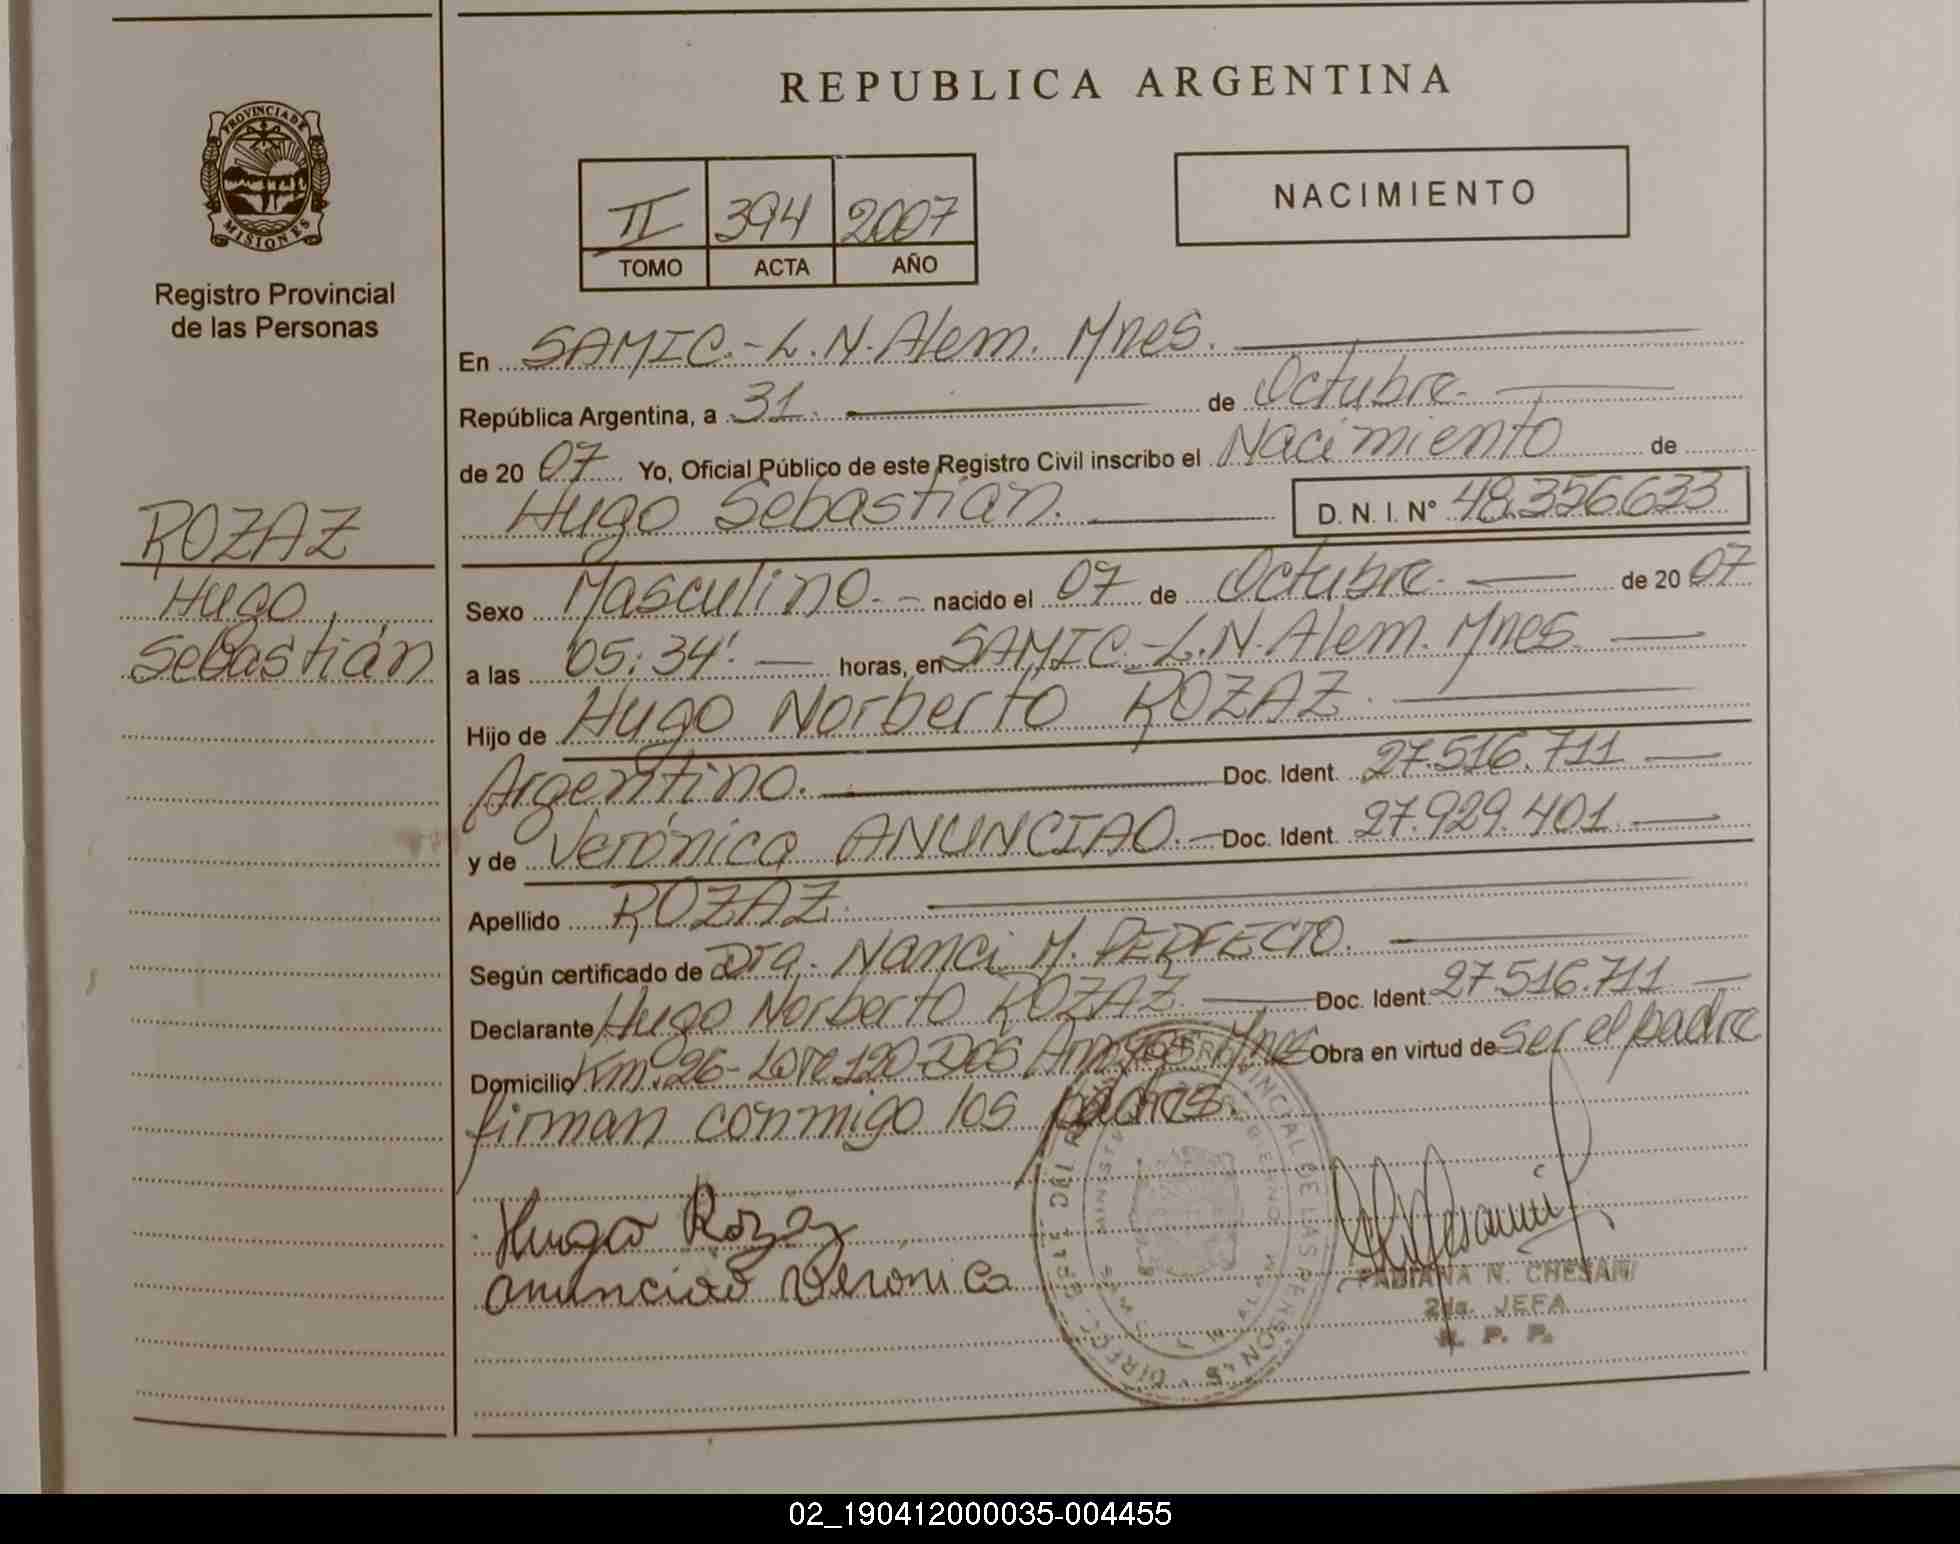 REPUBLICA ARGENTINA
PROVINCIA DE
MISIONES
Registro Provincial
de las Personas
II 394 2007
TOMO ACTA AÑO
NACIMIENTO
En SAMIC.-L.N.Alem. Mnes.
República Argentina, a 31. de Octubre.
de 20 07 Yo, Oficial Público de este Registro Civil inscribo el Nacimiento de
Hugo Sebastián. D. N. I. N° 48.356.633
ROZAZ
Hugo
Sebastián
Sexo Masculino.- nacido el 07 de Octubre. de 20 07
a las 05:34'. horas, en SAMIC.-L.N.Alem. Mnes.
Hijo de Hugo Norberto ROZAZ.
Argentino. Doc. Ident. 27.516.711
y de Verónica ANUNCIAO.- Doc. Ident. 27.929.401
Apellido ROZAZ.
Según certificado de Dra. Nanci M. PERFECTO.
Declarante Hugo Norberto ROZAZ. Doc. Ident. 27.516.711
Domicilio Km. 26-Lote 120-Dos Arroyos Mnes Obra en virtud de ser el padre
firman conmigo los padres.
Hugo Rozaz
Anunciao Verónica
PROVINCIAL DE LAS PERSONAS
FABIANA N. CHESANI
2da. JEFA
R. P. P.
02_190412000035-004455